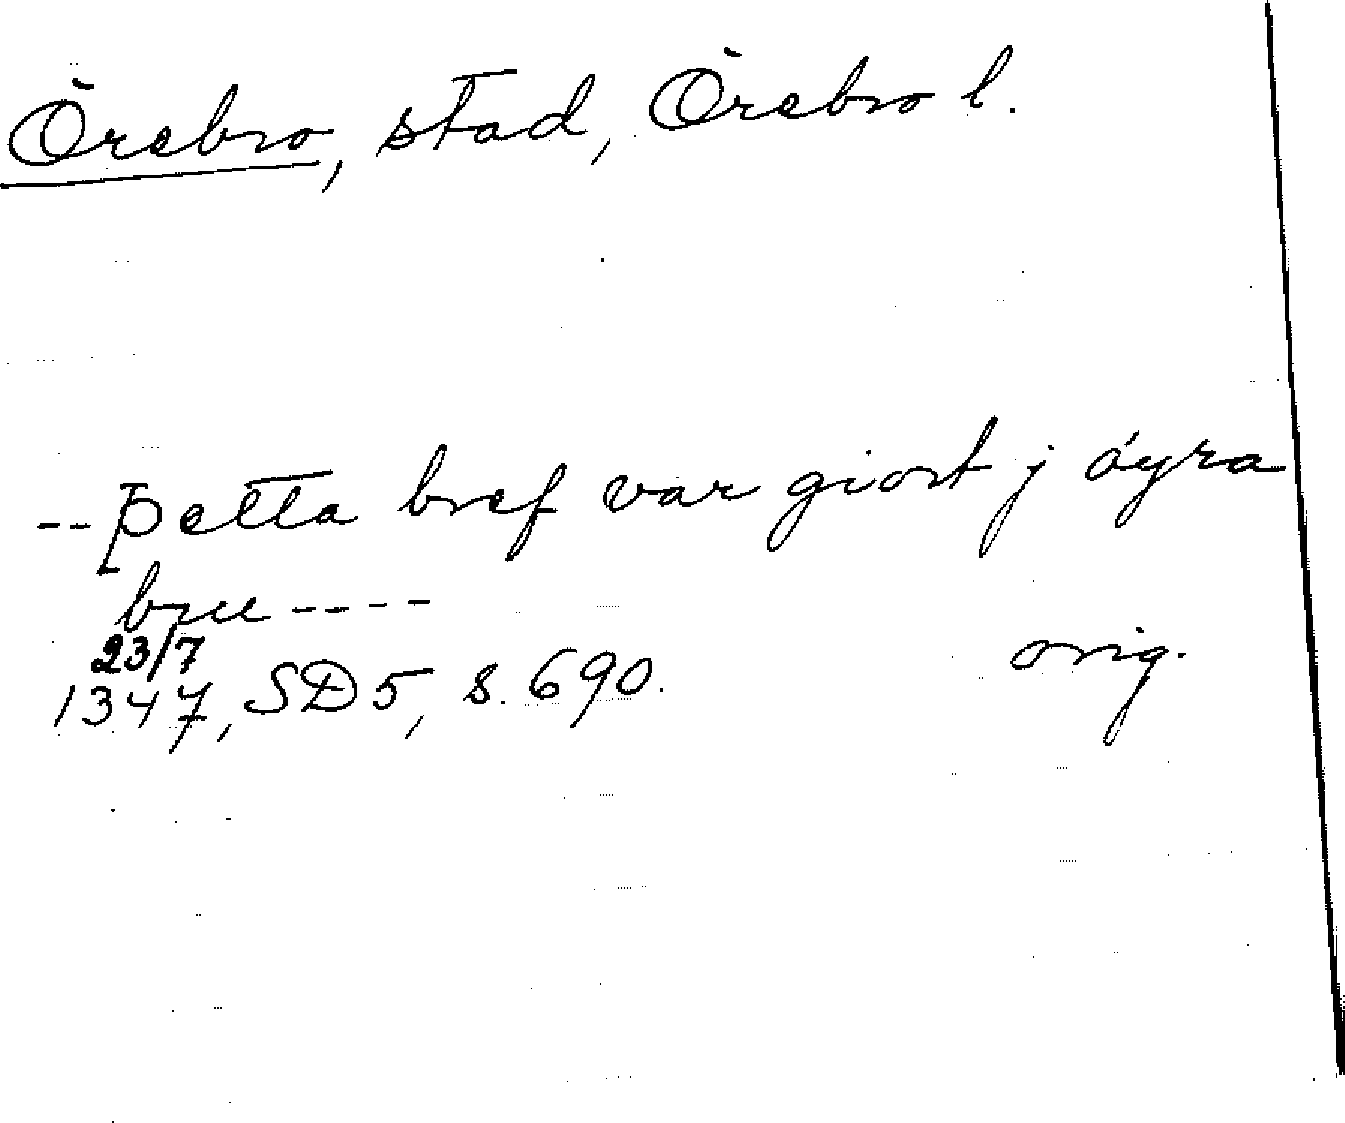 Örebro, stad, Örebro l.
-- þetta bref var giort j óyra
bru ----
23/7
1347, SD 5, s. 690. orig.